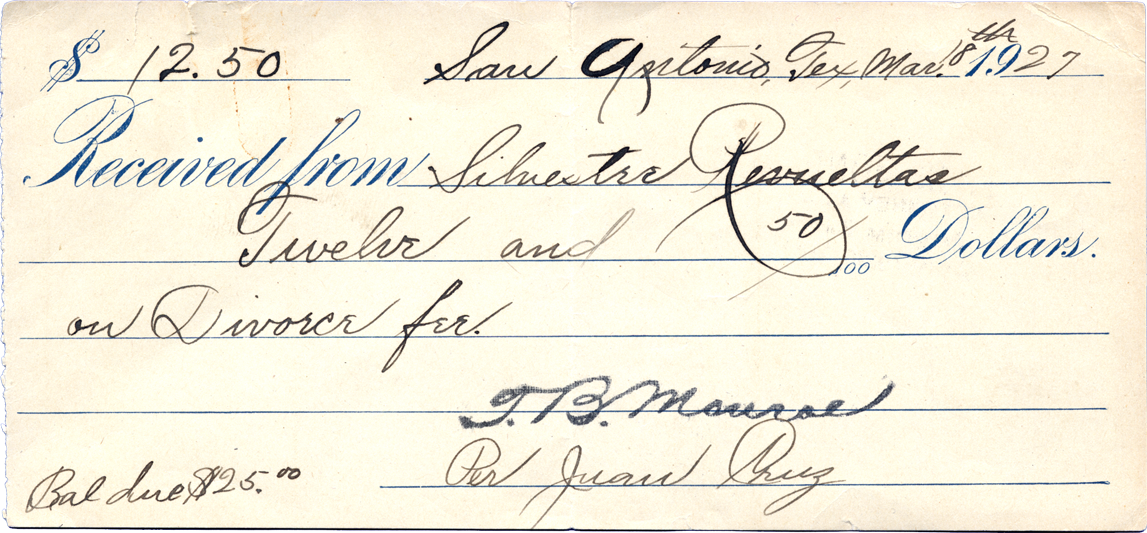 $ 12.50 San Antonio, Tex, Mar. 18th 1927
Received from Silvestre Revueltas
Twelve and 50/00 Dollars.
on Divorce fee.
T. B. Monroe
Per Juan Cruz
Bal due $25.00